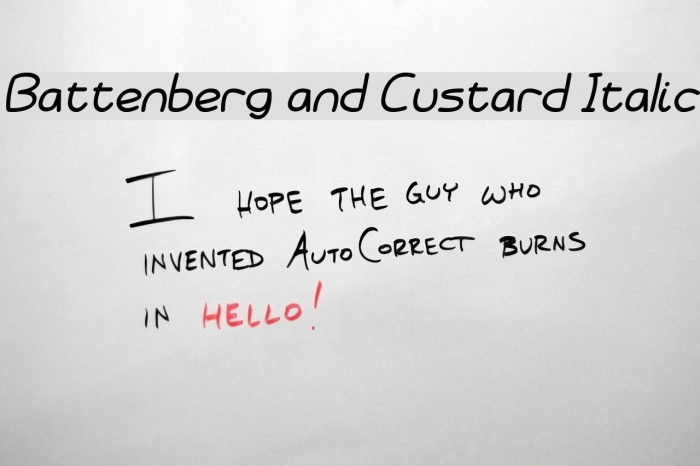 Battenberg and Custard Italic
I HOPE THE GUY WHO
INVENTED AUTOCORRECT BURNS
IN HELLO!